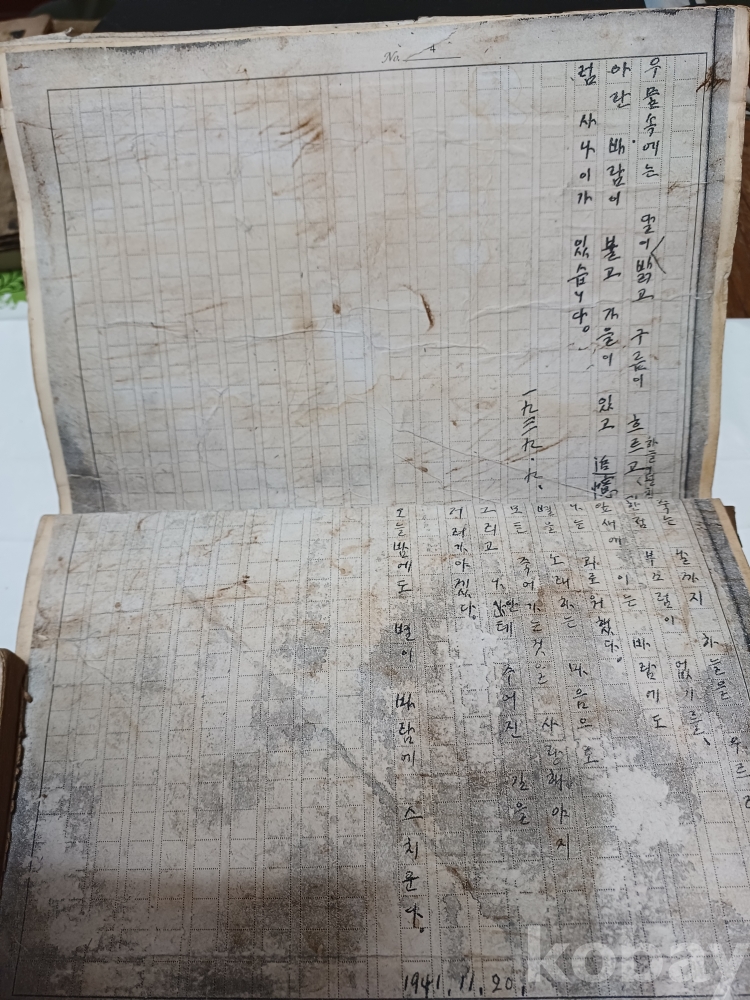 No. 4
우물속에는 달이 밝고 구름이 흐르고、 하늘이
아란 바람이 불고 가을이 있고 追憶
럼 사나이가 있습니다.
一九三九.九.
죽는 날까지 하늘을 우르러
한점 부끄럼이 없기를、
잎새에 이는 바람에도
나는 괴로워했다.
별을 노래하는 마음으로
모든 죽어가는것을 사랑해야지
그리고 나안테 주어진 길을
거러가야겠다.
오늘밤에도 별이 바람에 스치운다.
1941.11.20.
kobay